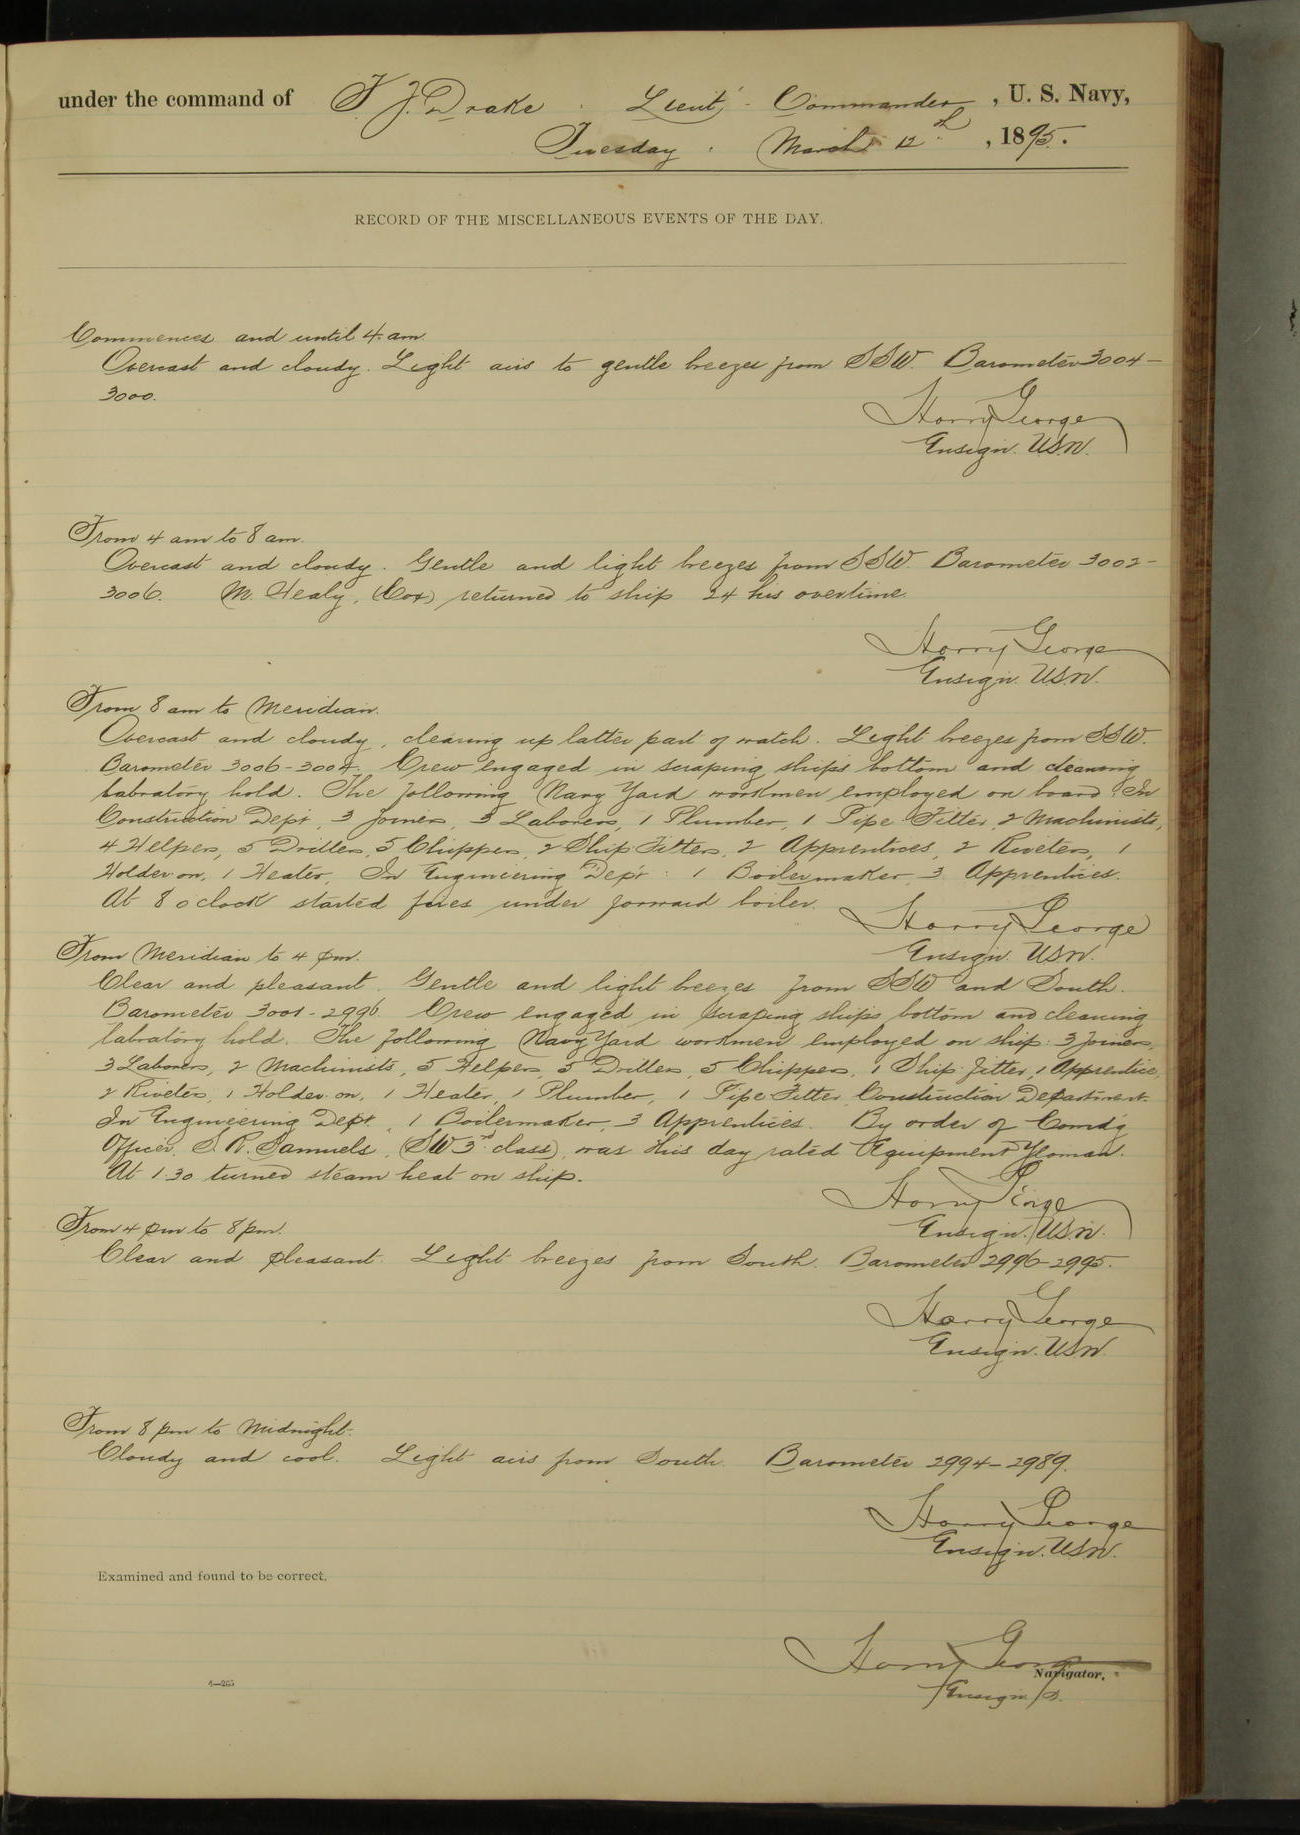 under the command of F. J. Drake, Lieut. Commander, U. S. Navy,
Tuesday, March 12th, 1895.
RECORD OF THE MISCELLANEOUS EVENTS OF THE DAY.
Commences and until 4 am.
Overcast and cloudy. Light airs to gentle breezes from SSW. Barometer 3004-
3000.
Harry George
Ensign. USN.
From 4 am to 8 am.
Overcast and cloudy. Gentle and light breezes from SSW. Barometer 3002-
3006. M. Healy, (Cox) returned to ship 24 hrs overtime.
Harry George
Ensign. USN.
From 8 am to Meridian.
Overcast and cloudy, clearing up latter part of watch. Light breezes from SSW.
Barometer 3006-3004. Crew engaged in scraping ships bottom and cleaning
labratory hold. The following Navy Yard workmen employed on board: In
Construction Dept, 3 Joiners, 3 Laborers, 1 Plumber, 1 Pipe Fitter, 2 Machinists,
4 Helpers, 5 Drillers, 5 Chippers, 2 Ship Fitters, 2 Apprentices, 2 Riveters, 1
Holder on, 1 Heater, In Engineering Dep't: 1 Boilermaker, 3 Apprentices.
At 8 oclock started fires under forward boiler.
Harry George
Ensign. USN.
From Meridian to 4 pm.
Clear and pleasant. Gentle and light breezes from SSW and South.
Barometer 3001-2996. Crew engaged in scraping ships bottom and cleaning
labratory hold. The following Navy Yard workmen employed on ship: 3 Joiners,
3 Laborers, 2 Machinists, 5 Helpers, 5 Drillers, 5 Chippers, 1 Ship fitter, 1 Apprentice,
2 Riveters, 1 Holder on, 1 Heater, 1 Plumber, 1 Pipe Fitter, Construction Department.
In Engineering Dept, 1 Boilermaker, 3 Apprentices. By order of Comd'g
Officer, S. R. Samuels, (SW 3rd class), was this day rated Equipment Yeoman.
At 1.30 turned steam heat on ship.
Harry George
Ensign. USN.
From 4 pm to 8 pm.
Clear and pleasant. Light breezes from South. Barometer 2996-2995.
Harry George
Ensign. USN.
From 8 pm to Midnight.
Cloudy and cool. Light airs from South. Barometer 2994-2989.
Harry George
Ensign. USN.
Examined and found to be correct.
Harry George
Navigator.
Ensign